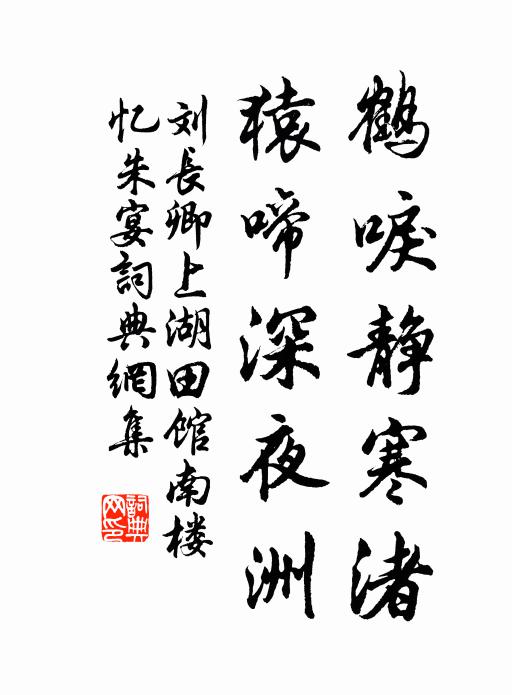 鹤唳静寒渚
猿啼深夜洲
刘長卿上湖田馆南楼
忆朱宴詞典網集
詞典网印